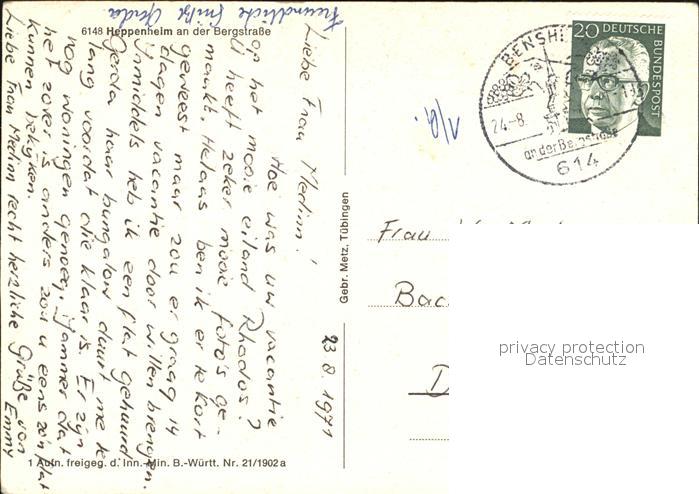 6148 Heppenheim an der Bergstraße
Freundliche Grüße Gerda
23 8. 1971
Liebe Frau Medinn!
Hoe was uw vacantie
op het mooie eiland Rhodos?
U heeft zeker mooie foto's ge-
maakt. Helaas ben ik er te kort
geweest maar zou er graag 14
dagen vacantie door willen brengen.
Inmiddels heb ik een flat gehuurd
Gerda haar bungalow duurt me te
lang voordat die klaar is. Er zijn
nog woningen genoeg. Jammer dat
het zover is anders zou u eens zo'n flat
kunnen bekijken.
Liebe Frau Medinn recht herzliche Grüße von
Emmy
1 Aufn. freigeg. d. Inn.-Min. B.-Württ. Nr. 21/1902 a
Gebr. Metz, Tübingen
BENSHEI
24.-8.
an der Bergstraße
614
20 DEUTSCHE
BUNDESPOST
Frau
Bad
D
privacy protection
Datenschutz